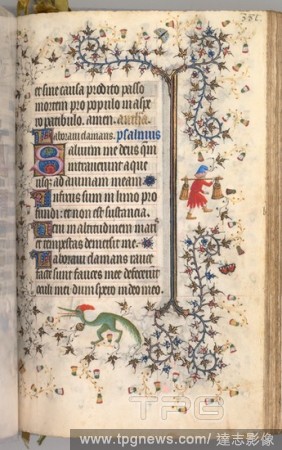 386
et sine causa prodito passo
mortem pro populo in aspe
ro patibulo. amen. antha.
Laboravi clamans. psalmus
Salvum me deus qm
intraverunt aque
usq; ad animam meam
Infixus sum in limo pro
fundi: et non est sustancia.
Veni in altitudinem mari
et tempestas demersit me.
Laboravi clamans rauce
facte sunt fauces mee defecerut
oculi mei dum spero in deo meo.
TPG
www.tpgnews.com/達志影像